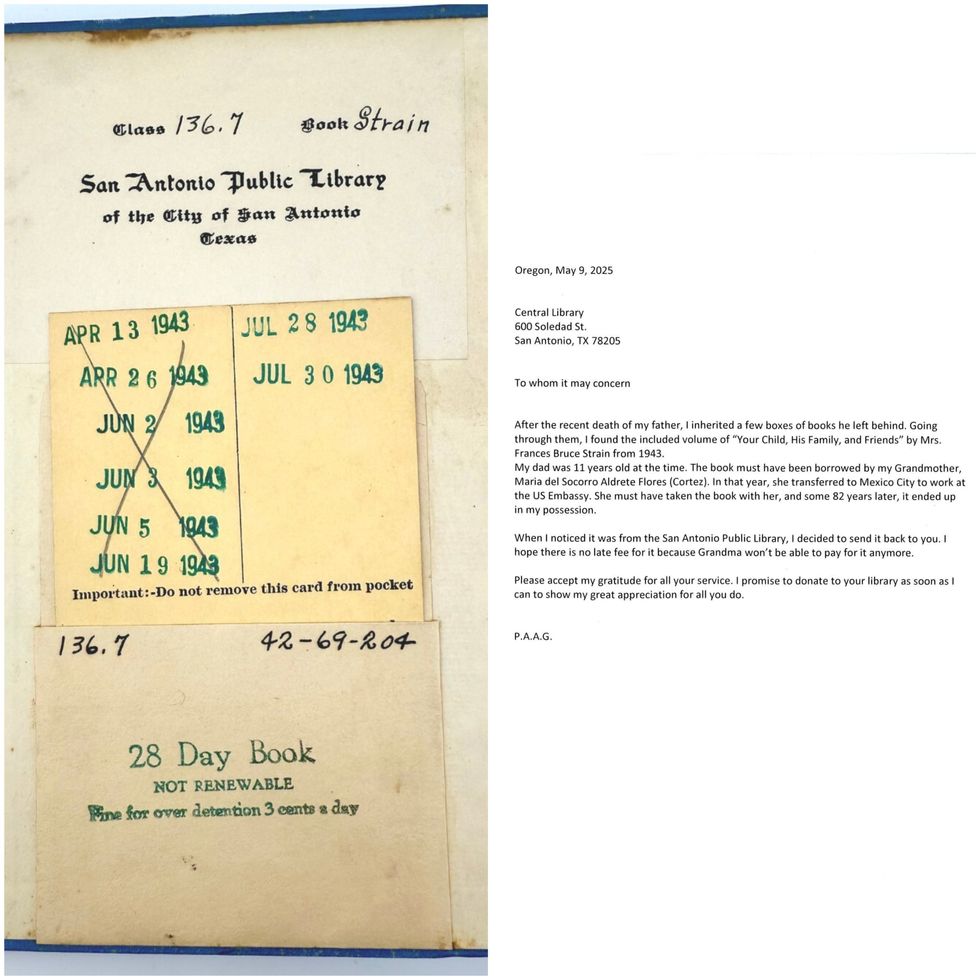 Class 136.7 Book Strain
San Antonio Public Library
of the City of San Antonio
Texas
APR 13 1943
APR 26 1943
JUN 2 1943
JUN 3 1943
JUN 5 1943
JUN 19 1943
JUL 28 1943
JUL 30 1943
Important:-Do not remove this card from pocket
136.7 42-69-204
28 Day Book
NOT RENEWABLE
Fine for over detention 3 cents a day
Oregon, May 9, 2025
Central Library
600 Soledad St.
San Antonio, TX 78205
To whom it may concern
After the recent death of my father, I inherited a few boxes of books he left behind. Going
through them, I found the included volume of “Your Child, His Family, and Friends” by Mrs.
Frances Bruce Strain from 1943.
My dad was 11 years old at the time. The book must have been borrowed by my Grandmother,
Maria del Socorro Aldrete Flores (Cortez). In that year, she transferred to Mexico City to work at
the US Embassy. She must have taken the book with her, and some 82 years later, it ended up
in my possession.
When I noticed it was from the San Antonio Public Library, I decided to send it back to you. I
hope there is no late fee for it because Grandma won’t be able to pay for it anymore.
Please accept my gratitude for all your service. I promise to donate to your library as soon as I
can to show my great appreciation for all you do.
P.A.A.G.